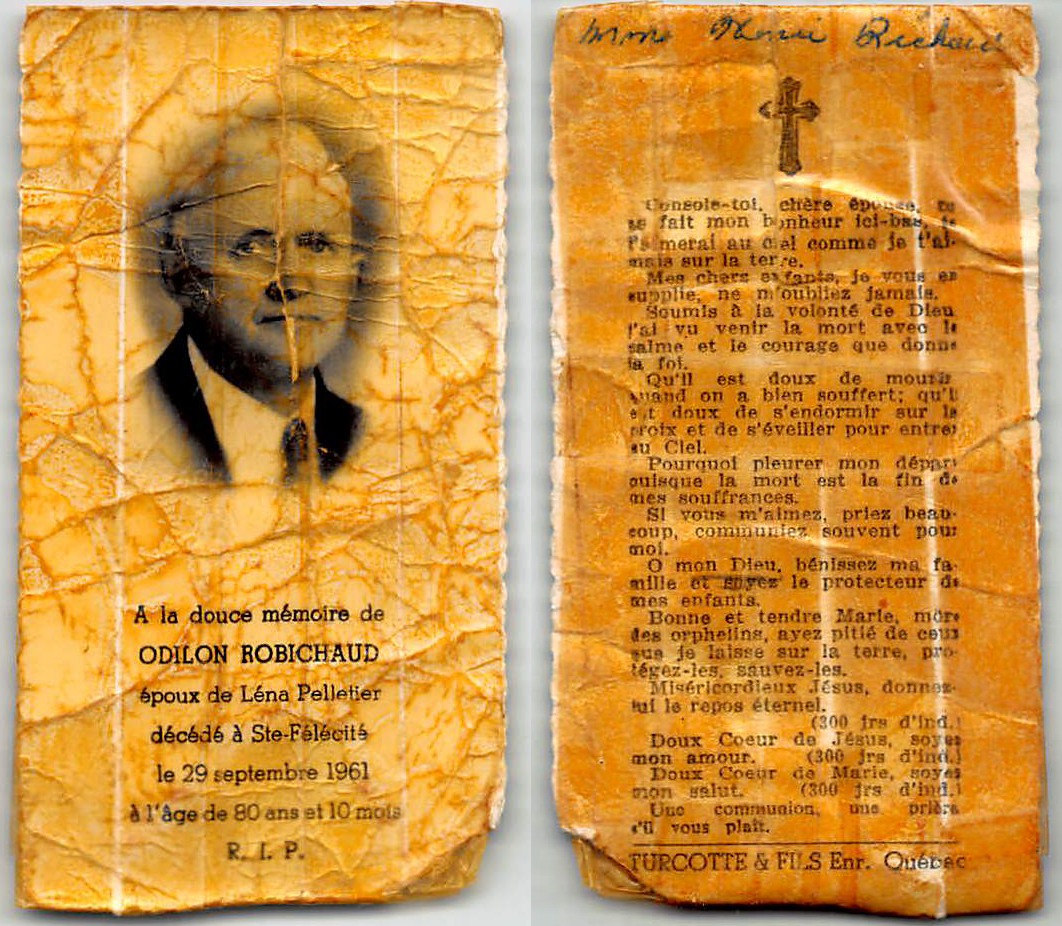 A la douce mémoire de
ODILON ROBICHAUD
époux de Léna Pelletier
décédé à Ste-Félécité
le 29 septembre 1961
à l'âge de 80 ans et 10 mois
R. I. P.
Mme Henri Richard
Console-toi, chère épouse, tu
as fait mon bonheur ici-bas, je
t'aimerai au ciel comme je t'ai-
mais sur la terre.
Mes chers enfants, je vous en
supplie, ne m'oubliez jamais.
Soumis à la volonté de Dieu
j'ai vu venir la mort avec le
calme et le courage que donne
la foi.
Qu'il est doux de mourir
quand on a bien souffert; qu'il
est doux de s'endormir sur la
croix et de s'éveiller pour entrer
au Ciel.
Pourquoi pleurer mon départ
puisque la mort est la fin de
mes souffrances.
Si vous m'aimez, priez beau-
coup, communiez souvent pour
moi.
O mon Dieu, bénissez ma fa-
mille et soyez le protecteur de
mes enfants.
Bonne et tendre Marie, mère
des orphelins, ayez pitié de ceux
que je laisse sur la terre, pro-
tégez-les, sauvez-les.
Miséricordieux Jésus, donnez-
lui le repos éternel.
(300 jrs d'ind.)
Doux Coeur de Jésus, soyez
mon amour. (300 jrs d'ind.)
Doux Coeur de Marie, soyez
mon salut. (300 jrs d'ind.)
Une communion, une prière
s'il vous plaît.
TURCOTTE & FILS Enr. Québec